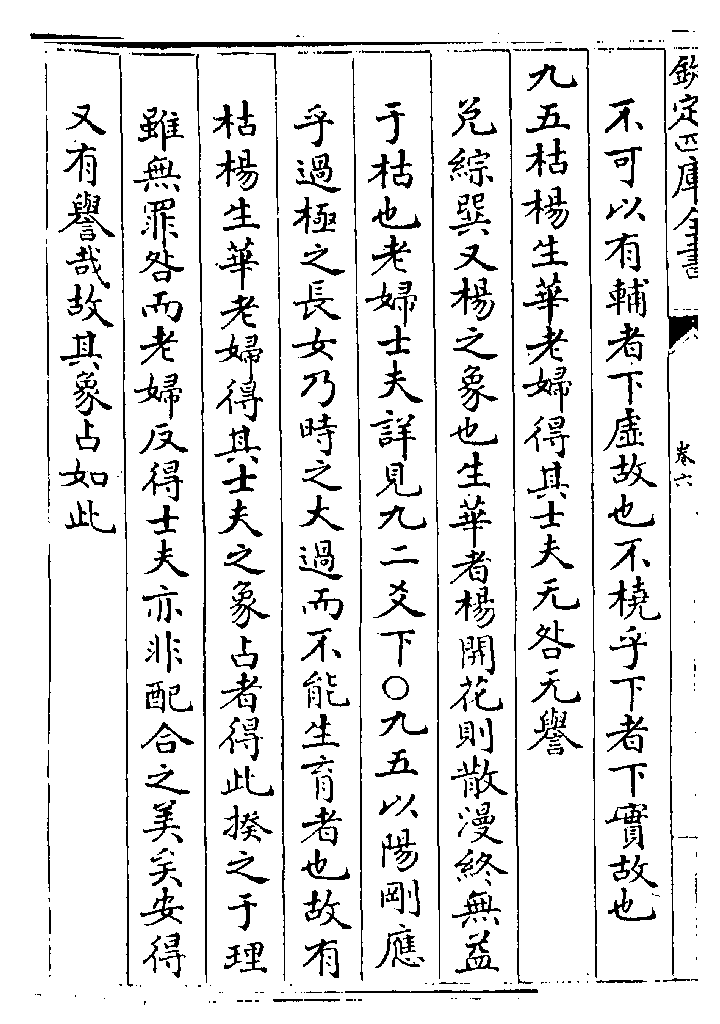 欽定四庫全書
卷六
不可以有輔者下虛故也不橈乎下者下實故也
九五枯楊生華老婦得其士夫无咎无譽
兌綜巽又楊之象也生華者楊開花則散漫終無益
于枯也老婦士夫詳見九二爻下○九五以陽剛應
乎過極之長女乃時之大過而不能生育者也故有
枯楊生華老婦得其士夫之象占者得此揆之于理
雖無罪咎而老婦反得士夫亦非配合之美矣安得
又有譽哉故其象占如此